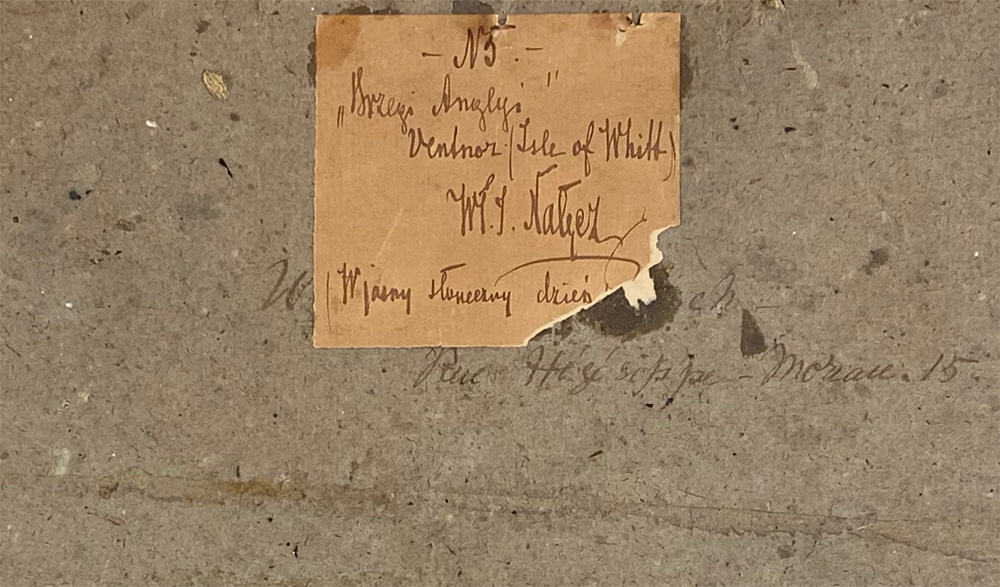 - N5 -
„Brzegi Anglyi"
Ventnor (Isle of Whitt)
Wł. S. Nałęcz
(W jasny słoneczny dzień
W ch -
Rue Hégésippe - Moreau. 15